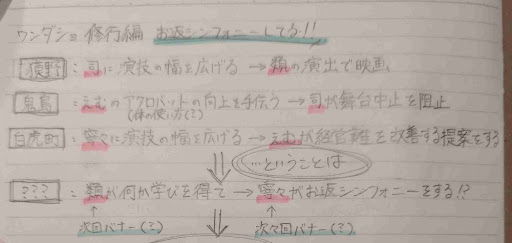 ワンダショ 修行編 お返シンフォニーしてる!!
猿野:司に演技の幅を広げる→類の演出で映画
鬼島:えむのアクロバットの向上を手伝う→司が舞台中止を阻止
(体の使い方(?)
白虎町:寧々に演技の幅を広げる→えむが経営難を改善する提案をする
…ということは
???:類が何か学びを得て→寧々がお返シンフォニーをする!?
次回バナー(?) 次々回バナー(?)